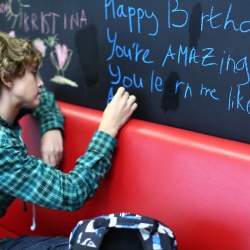 KRISTINA
Happy Birth
You're AMAZING
you le rn me like
A